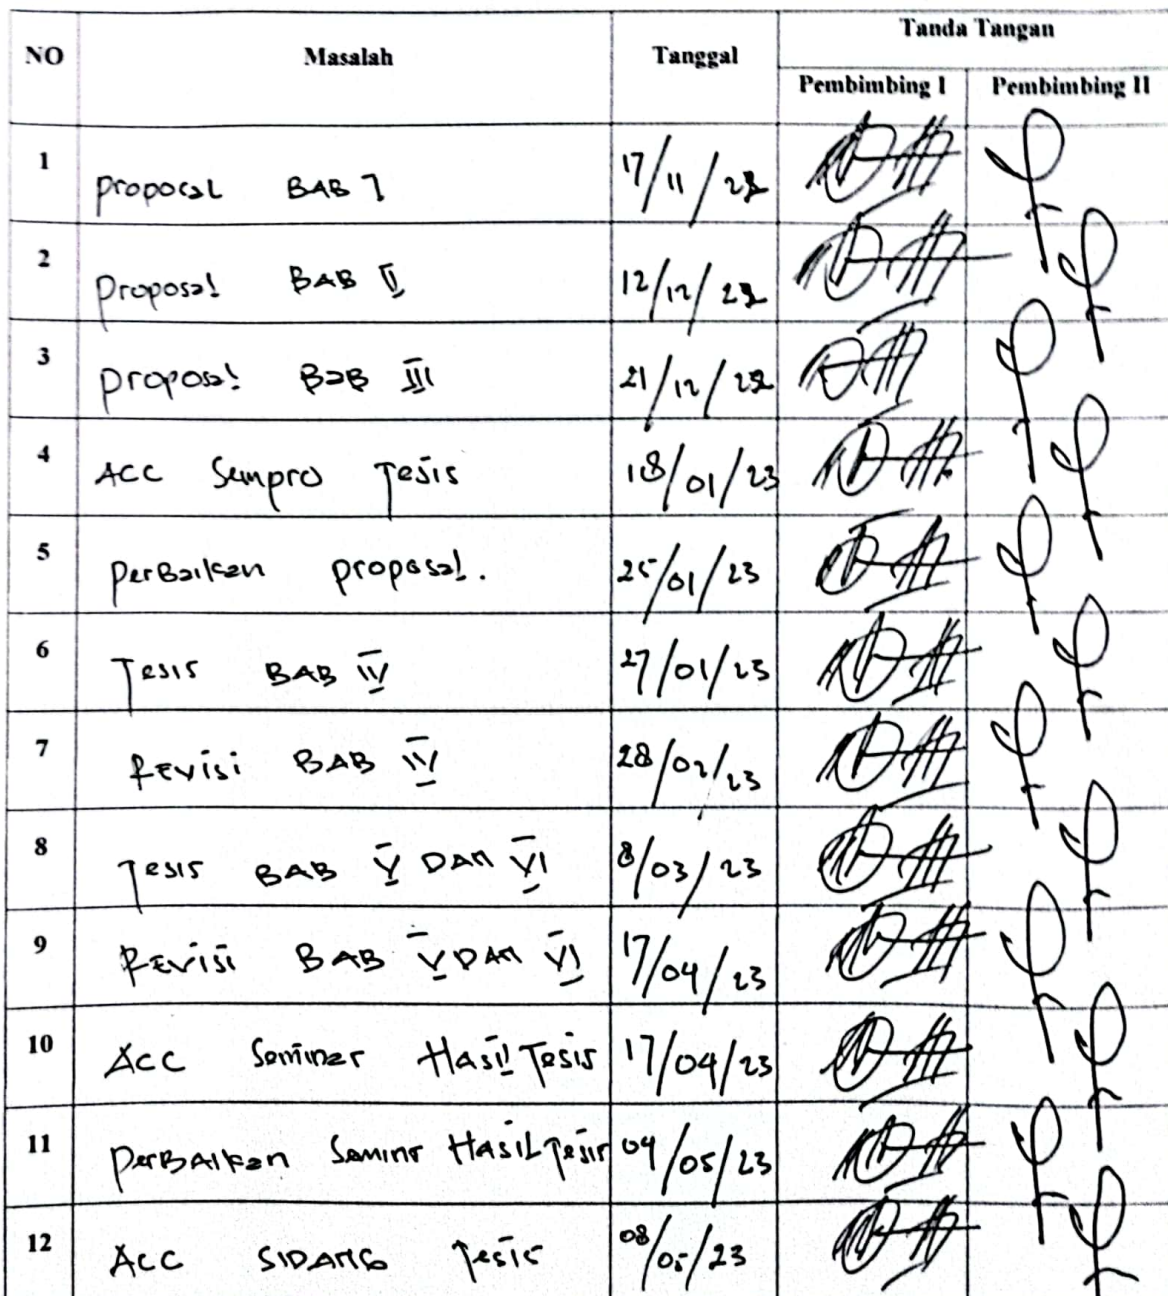 NO Masalah Tanggal Tanda Tangan
Pembimbing I Pembimbing II
1 Proposal BAB I 17/11/22
2 Proposal BAB II 12/12/22
3 Proposal BaB III 21/12/22
4 ACC Sempro Tesis 18/01/23
5 PerBaikan proposal. 25/01/23
6 Tesis BAB IV 27/01/23
7 Revisi BAB IV 28/02/23
8 Tesis BAB V DAN VI 8/03/23
9 Revisi BAB V DAN VI 17/04/23
10 Acc Seminar Hasil Tesis 17/04/23
11 PerBAikan Seminr HasiL Tesis 04/05/23
12 Acc SIDANG Tesis 08/05/23